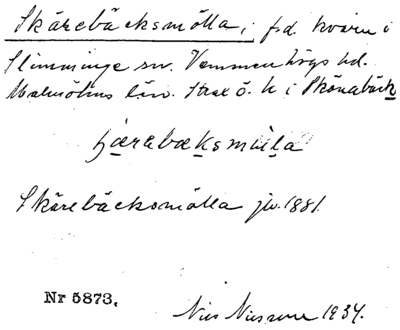 Skärebäcksmölla, f.d. kvarn i
Slimminge sn. Vemmenhögs hd.
Malmöhus län. Strax ö. k i Skönabäck
Skärebäcksmölla jw. 1881.
Nr 5873.
Nils Nilsson 1934.